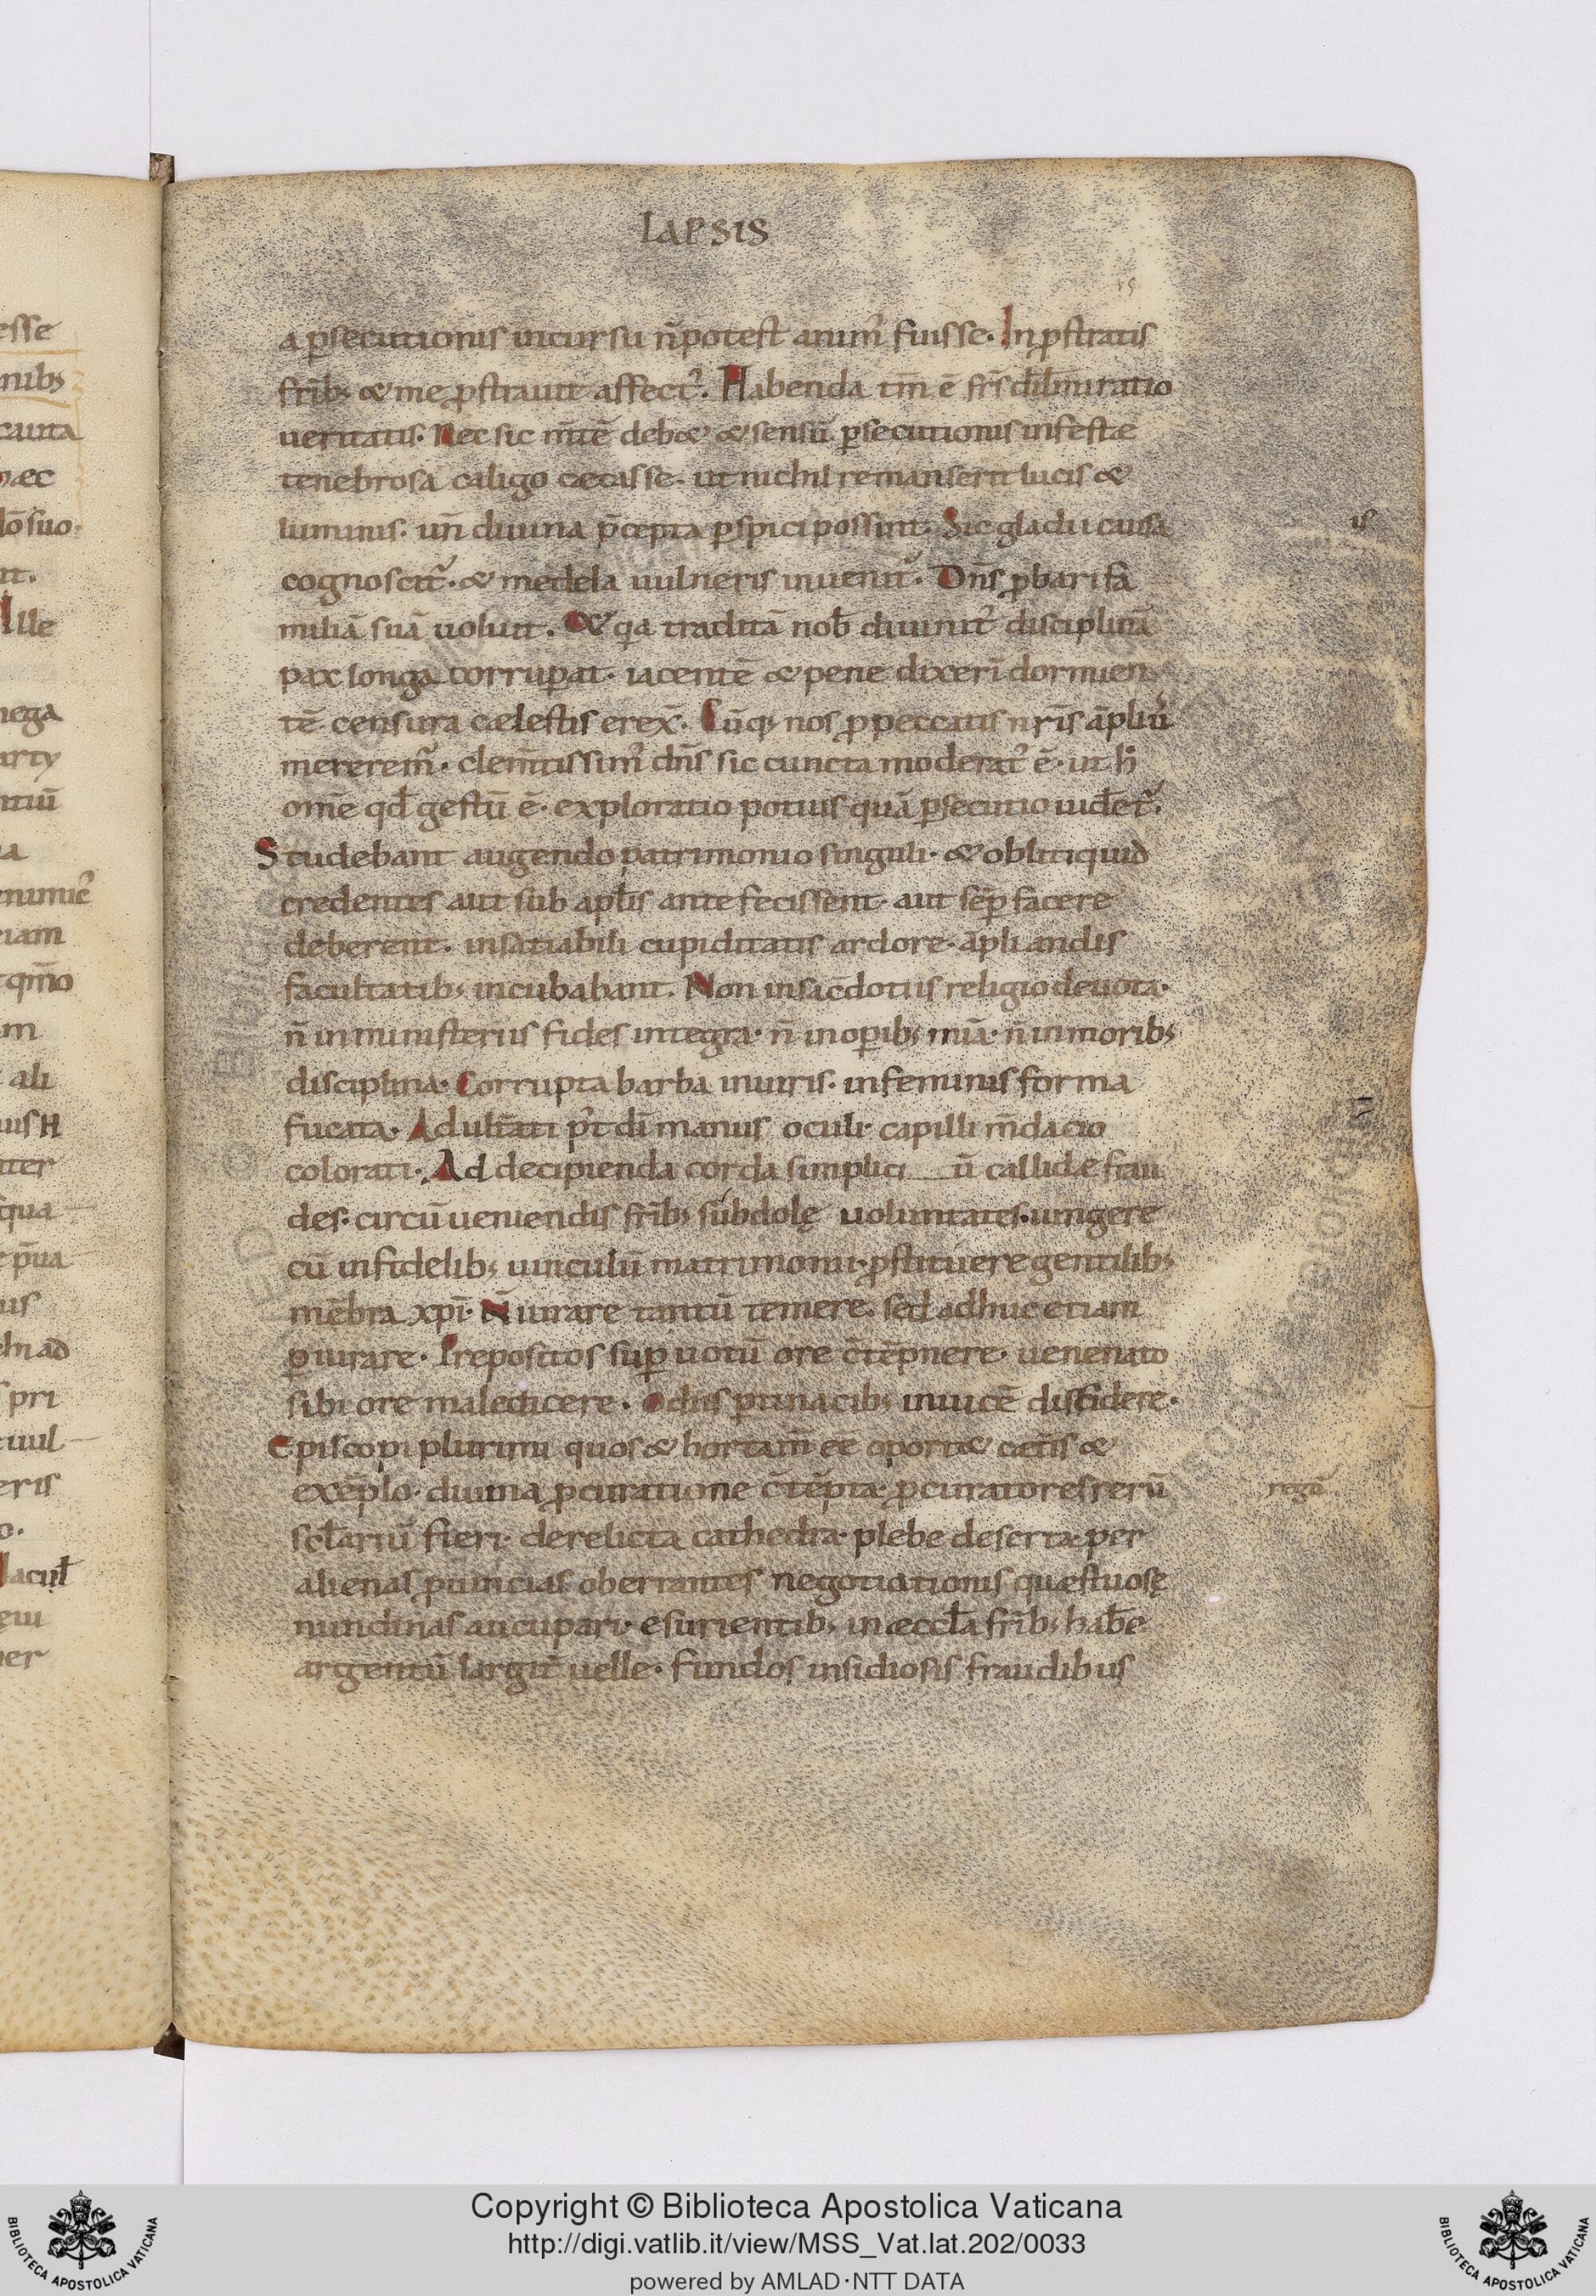 lapsis
15
a p̱secutionis incursu n̄ potest animꝰ fuisse. In ꝓstratis
frīb; & me ꝓstrauit affectꝰ. Habenda tm̄ ē frs̄ dil̄mi ratio
ueritatis. Nec sic m̄tē deb& & sensū p̱secutionis infestæ
tenebrosa caligo cæcasse. ut nichil remanserit lucis &
luminis. un̄ diuina p̄cepta p̱spici possint. Sic gladii causa
cognoscit᷑. & medela uulneris inuenit᷑. Dn̄s ꝓbari fa
miliā suā uoluit. & qa traditā nob̄ diuinitꝰ disciplinā
pax longa corrup̱at. iacentē & pene dixerī dormien
tē censura cælestis erex̄. Cūq; nos ꝓ peccatis nr̄is āpliꝰ
mererem᷑. clem̄tissimꝰ dn̄s sic cuncta moderatꝰ ē. ut h̊
om̄e qd̄ gestū ē. exploratio potius quā p̱secutio uidēr᷑.
Studebant augendo patrimonio singuli. & obliti quid
credentes aut sub apl̄is ante fecissent. aut semp̱ facere
deberent. insatiabili cupiditatis ardore. āpliandis
facultatib; incubabant. Non in sac̄dotiis religio deuota.
n̄ in ministeriis fides integra. n̄ in op̱ib; mīa. n̄ in morib;
disciplina. Corrupta barba in uiris. in feminis forma
fucata. Adult̄ati pꝰt dī manus oculi. capilli m̄dacio
colorati. Ad decipienda corda simplici__ū callidæ frau
des. circū ueniendis frīb; subdolę uoluntates. iungere
cū infidelib; uinculū matrimonii. ꝓstituere gentilib;
mēbra xp̄i. N̄ iurare tantū temere. sed adhuc etiam
p̱iurare. Prepositos sup̱ uotū ore c̄tēpnere. uenenato
sibi ore maledicere. Odiis p̱tinacib; inuicē dissidere.
Episcopi plurimi quos & hortam̄ eē oport& cæt̄is &
exēplo. diuina ꝓcuratione c̄tēpta. ꝓcuratores rerū
regū
scl̄ariū fieri. derelicta cathedra. plebe deserta. per
alienas ꝓuincias oberrantes negotiationis quæstuosę
nundinas aucupari. esurientib; in æccl̄a frīb; hab̄e
argentū largit̄ uelle. fundos insidiosis fraudibus
esse
nib;
cauta
æc
lō suo.
it.
Ille
nega
arty
ntiū
a
nimicꝰ
iam
qm̄o
m
ali
uis H
iter
qua
p̄ua
us
ad
pri
uul
eris
o.
Iacul̄
ęui
er
© Biblioteca Apostolica Vaticana
Copyright © Biblioteca Apostolica Vaticana
http://digi.vatlib.it/view/MSS_Vat.lat.202/0033
powered by AMLAD·NTT DATA
BIBLIOTECA APOSTOLICA VATICANA
BIBLIOTECA APOSTOLICA VATICANA